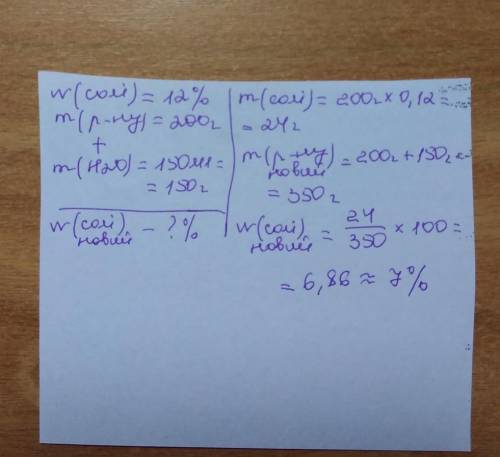 w(солі) = 12%
m(р-ну) = 200г
+
m(H2O) = 150мл =
= 150г
w(солі) - ? %
новий
m(солі) = 200г × 0,12 =
= 24г
m(р-ну) = 200г + 150г =
новий
= 350г
w(солі) = 24/350 × 100 =
новий
= 6,86 ≈ 7%